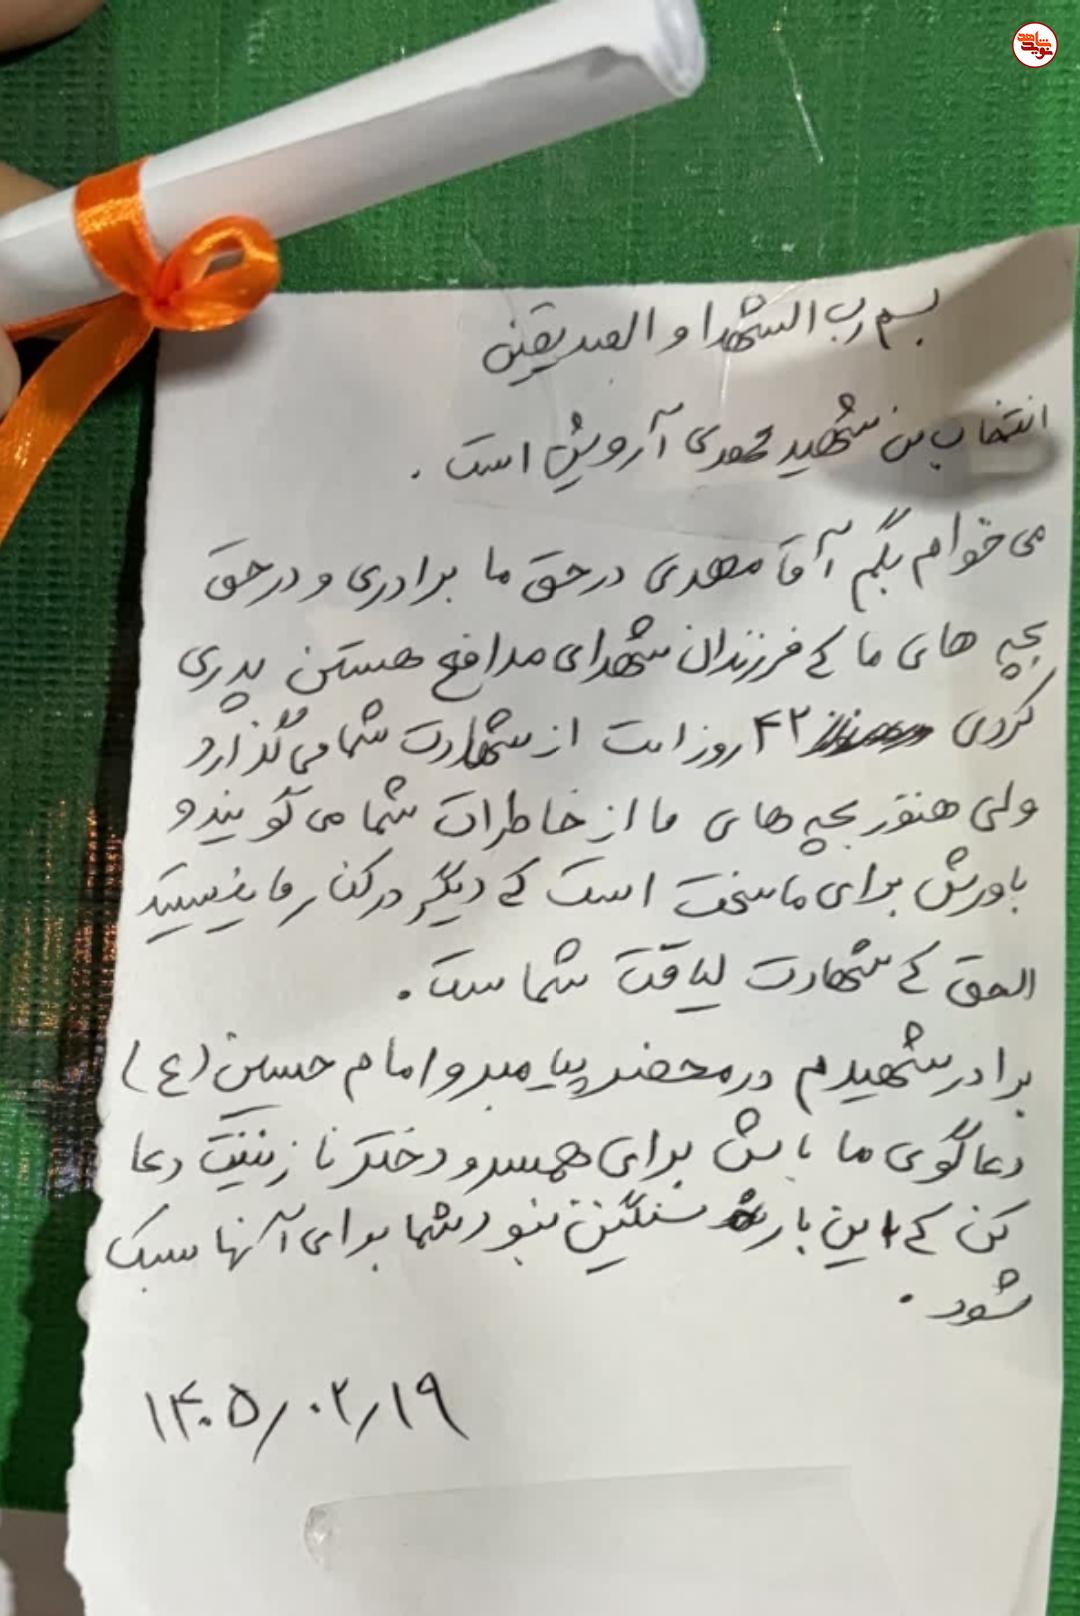 نوید شاهد
بسم رب الشهدا و الصدیقین
انتخاب من شهید مهدی آرویش است .
می خوام بگم آقا مهدی در حق ما برادری و در حق
بچه های ما که فرزندان شهدای مدافع هستن پدری
کردی ۴۲ روز است از شهادت شما می گذارد
ولی هنوز بچه های ما از خاطرات شما می گویند و
باورش برای ما سخت است که دیگر در کنار ما نیستید
الحق که شهادت لیاقت شماست .
برادر شهیدم در محضر پیامبر و امام حسین (ع)
دعاگوی ما باش برای همسر و دختر نازنینت دعا
کن که این بار سنگین نبود شما برای آنها سبک
شود .
۱۴۰۵/۰۲/۱۹